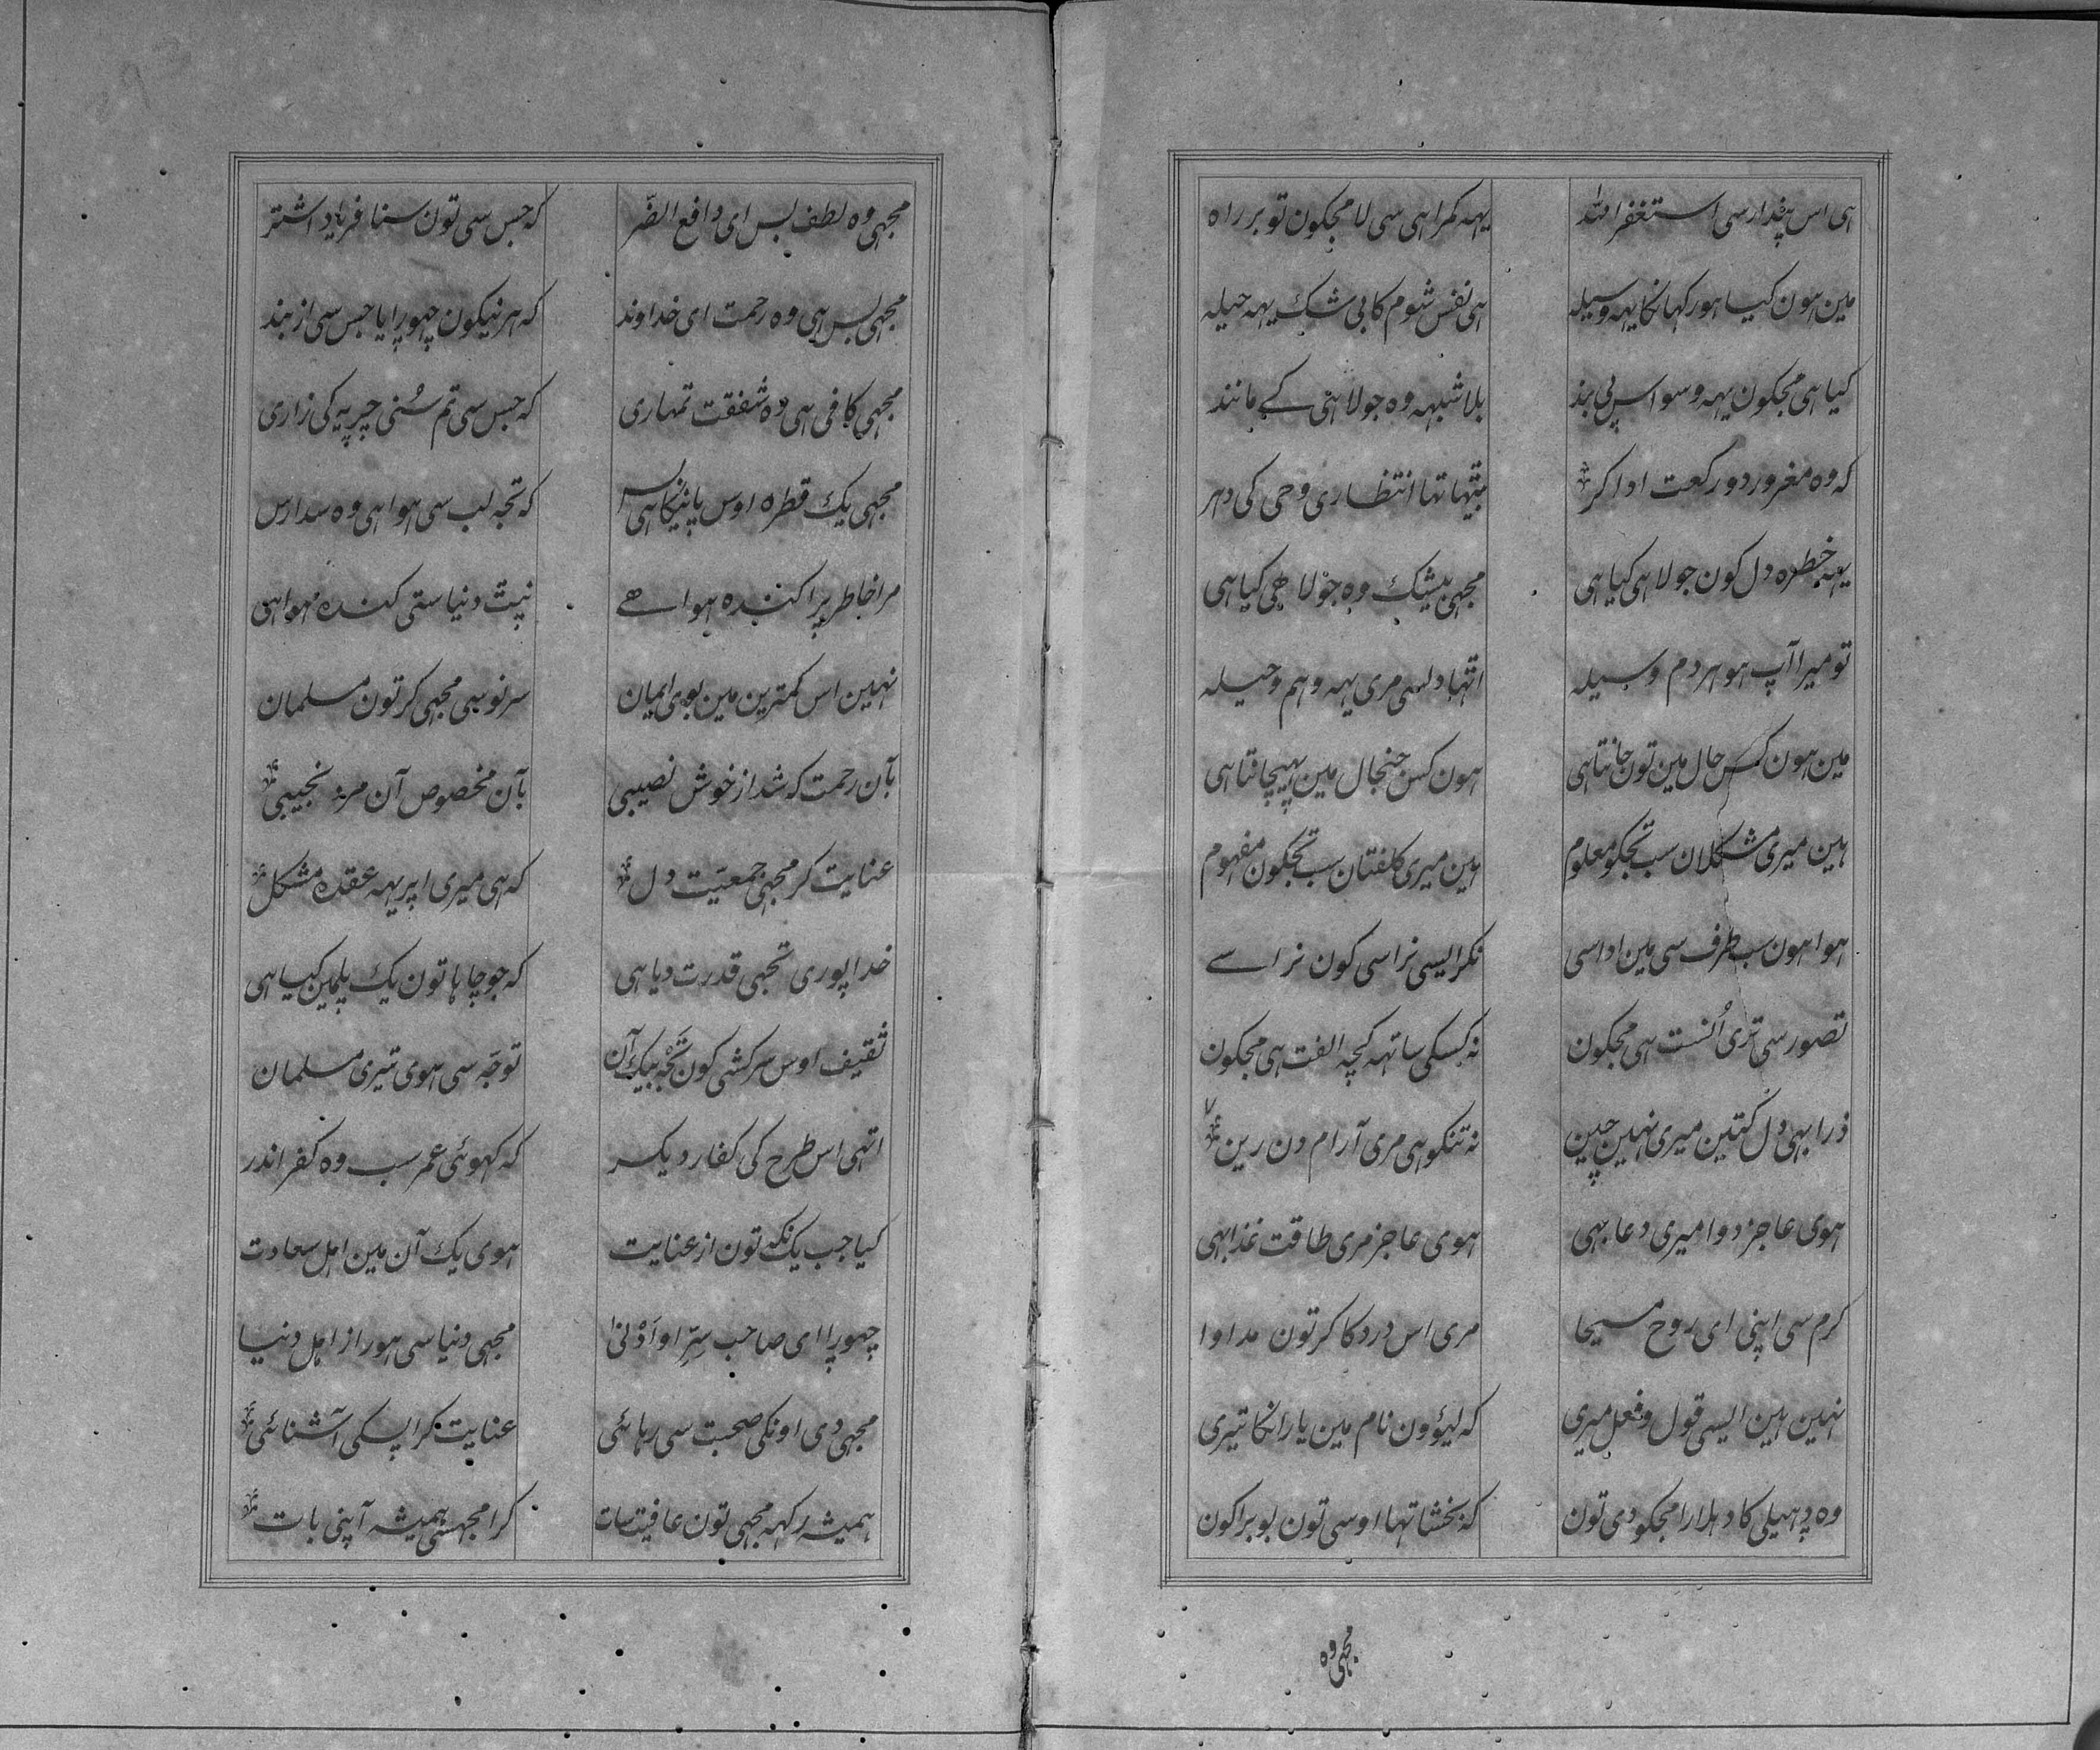 ہی اس پندار سی استغفر اللہ یہہ کمراہی سی لا مجکون تو بر راہ
مین ہون کیا ہور کہانکا یہہ وسیلہ ہی نفس شوم کا بی شک یہہ حیلہ
کیا ہی مجکون یہہ وسواس پی بند بلا شبہہ وہ جولاہی کے مانند
کہ وہ مغرور دو رکعت ادا کر بیتہا تہا انتظاری وحی کی دہر
یہہ خطرہ دل کون جو لاہی کیا ہی مجہی بیشک وہ جولاہی کیا ہی
تو میرا آپ ہو ہر دم وسیلہ اتہا دلسی مری یہہ وہم و حیلہ
مین ہون کس حال مین تون جانتا ہی ہون کس جنجال مین پہچانتا ہی
ہین میری مشکلان سب تجکو معلوم ہین میری کلفتان سب تجکون مفہوم
ہوا ہون سب طرف سی مین اداسی نکر ایسی نراسی کون نراسے
تصور سی تری اُنست ہی مجکون نہ کسکی ساتہہ کچہ الفت ہی مجکون
ذرا بہی دل کتین میری نہین چین نہ تنکو ہی مری آرام دن رین
ہوی عاجز دوا میری دعا بہی ہوی عاجز مری طاقت غذا بہی
کرم سی اپنی ای روح مسیحا مری اس درد کا کر تون مداوا
نہین ہین ایسی قول و فعل میری کہ لیؤون نام مین یارانکا تیری
وہ پہیلی کا دہلارا مجکو دی تون کہ بخشا تہا اوسی تون بوبرا کون
مجہی وہ
مجہی وہ لطف بس ای دافع الضّر کہ جس سی تون سنا فریاد اشتر
مجہی بس ہی وہ رحمت ای خداوند کہ ہرنیکون چہوڑایا جس سی از بند
مجہی کافی ہی وہ شفقت تمہاری کہ جس سی تم سُنی چڑیہ کی زاری
مجہی یک قطرہ اوس پانیکا ہی بس کہ تجہ لب سی ہوا ہی وہ سدارس
مرا خاطر پراکندہ ہوا ہے نپٹ دنیا ستی کندہ ہوا ہی
نہین اس کمترین مین بوی ایمان سر نو سی مجہی کر تون مسلمان
بآن رحمت کہ شد از خوش نصیبی بآن مخصوص آن مرد نجیبی
عنایت کر مجہی جمعیّت دل کہ ہی میری اپر یہہ عقدہ مشکل
خدا پوری تجہی قدرت دیا ہی کہ جو چاہا تون یک پلمین کیا ہی
ثقیف اوس سرکشی کون تجہ بیک آن توجّہ سی ہوی تیری مسلمان
اتہی اس طرح کی کفار دیکر کہ کہوئی عمر سب وہ کفر اندر
کیا جب یک نکہ تون از عنایت ہوی یک آن مین اہل سعادت
چہوڑا ای صاحب سِرّ او اَدْنیٰ مجہی دنیا سی ہور از اہل دنیا
مجہی دی اونکی صحبت سی رہائی عنایت کر اپسکی آشنائی
ہمیشہ رکہہ مجہی تون عافیت سات کرا مجہستی ہمیشہ آپنی بات